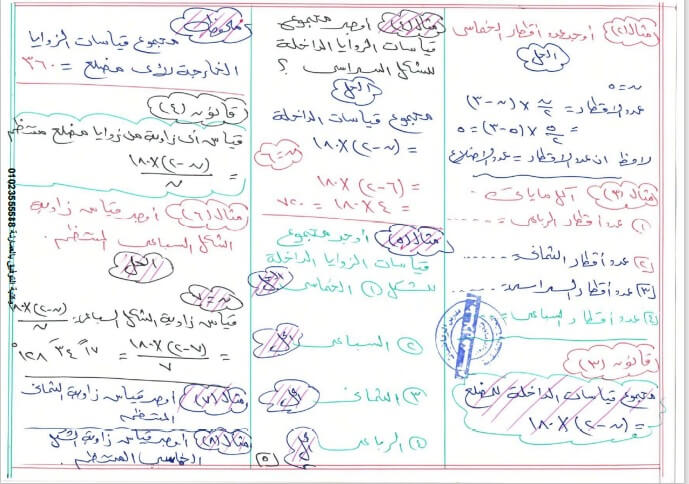 مثال (٢) أوجد عدد أقطار الخماسى
الحل
ن = ٥
عدد الاقطار = ن/٢ × (ن - ٣)
= ٥/٢ × (٥ - ٣) = ٥
لاحظ ان عدد الاقطار = عدد الاضلاع
مثال (٣) أكمل ما يأتى
١) عدد أقطار الرباعى = .....
٢) عدد أقطار الثمانى = .....
٣) عدد أقطار السداسى = .....
٤) عدد أقطار السباعى = .....
قانون (٣)
مجموع قياسات الداخلة للمضلع
= (ن - ٢) × ١٨٠
مثال (٤) أوجد مجموع
قياسات الزوايا الداخلة
للشكل السداسى ؟
الحل
مجموع قياسات الداخلة
= (ن - ٢) × ١٨٠
ن = ٦
(٦ - ٢) × ١٨٠
= ٤ × ١٨٠ = ٧٢٠
مثال (٥) أوجد مجموع
قياسات الزوايا الداخلة
للشكل ١) الخماسى
٢) السباعى
٣) الثمانى
٤) الرباعى
٥
ملحوظات
مجموع قياسات الزوايا
الخارجة لأى مضلع = ٣٦٠
قانون (٤)
قياس أى زاوية من زوايا مضلع منتظم
= (ن - ٢) × ١٨٠ / ن
مثال (٦) أوجد قياس زاوية
الشكل السباعى المنتظم.
الحل
ن = ٧
قياس زاوية الشكل السباعى = (ن - ٢) × ١٨٠ / ن
= (٧ - ٢) × ١٨٠ / ٧ = ١٧ ً ٣٤ َ ١٢٨ ْ
مثال (٧) أوجد قياس زاوية الثمانى
المنتظم
مثال (٨) أوجد قياس زاوية الشكل
الخماسى المنتظم.